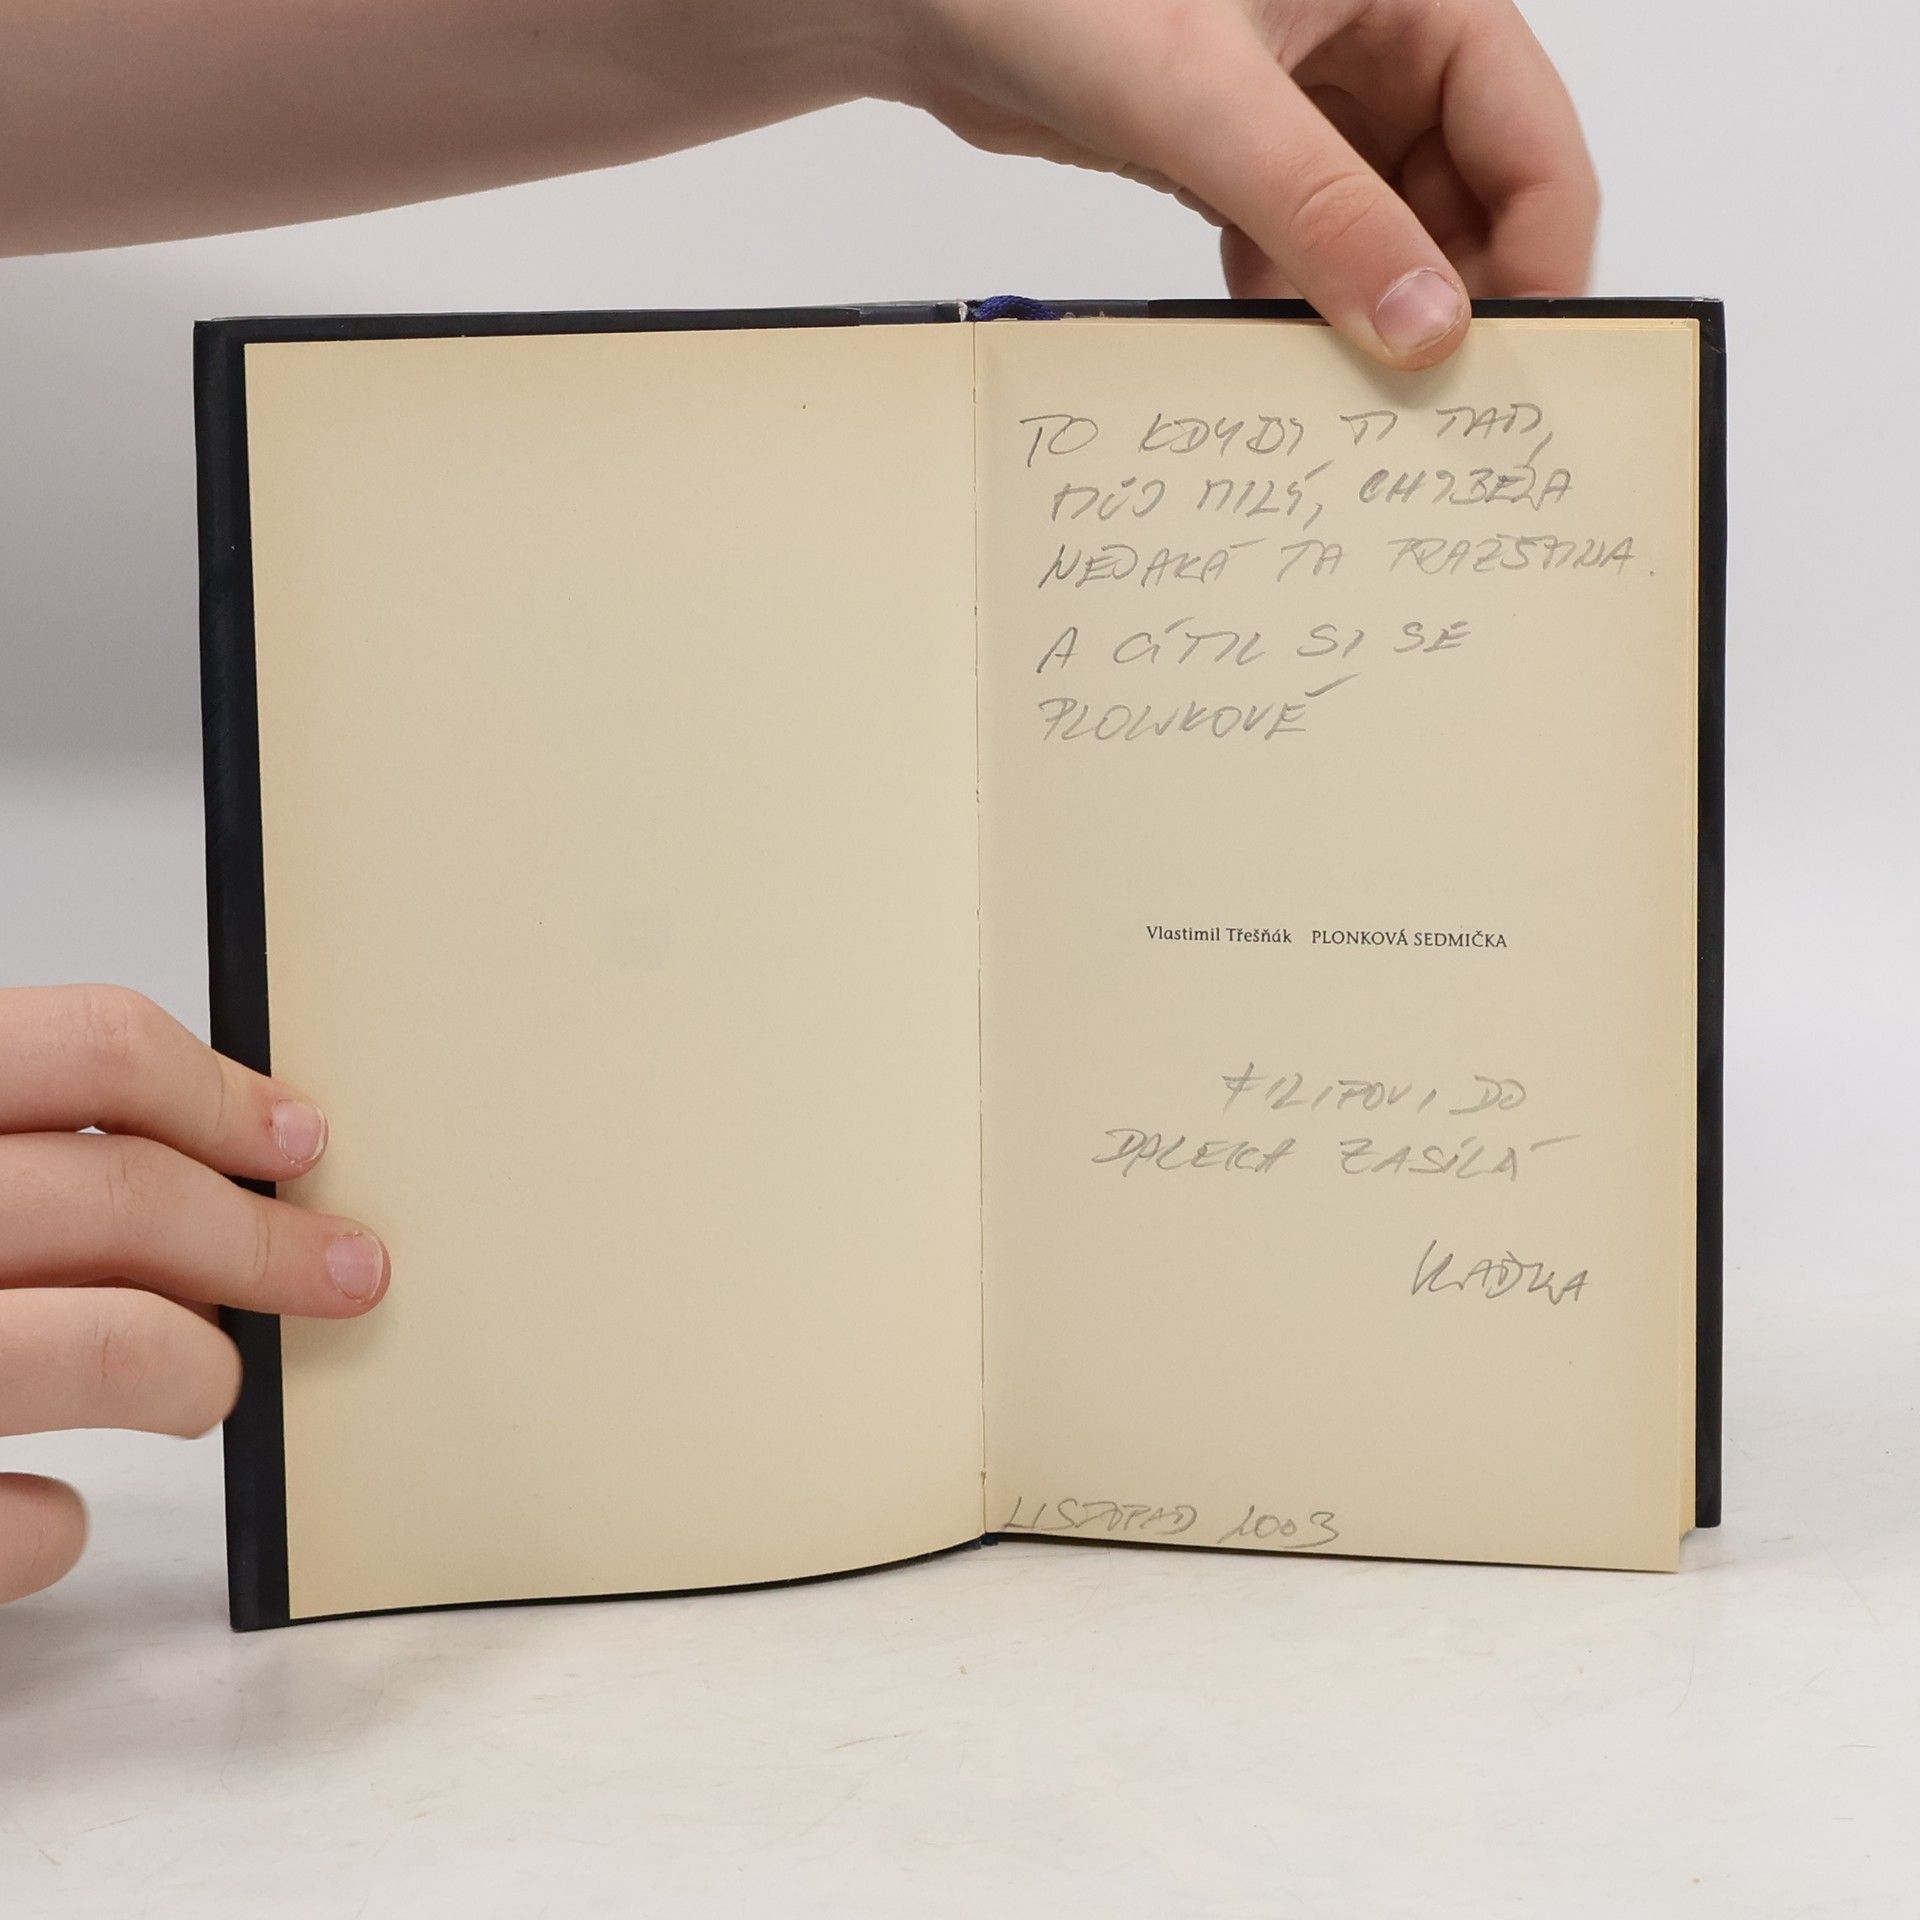 TO KDYBY TI TAM,
MŮJ MILÝ, CHYBĚLA
NĚJAKÁ TA PRAŽŠTINA.
A CÍTIL SI SE
PLONKOVĚ
Vlastimil Třešňák PLONKOVÁ SEDMIČKA
FILIPOVI DO
DALEKA ZASÍLÁ
LISTOPAD 2003